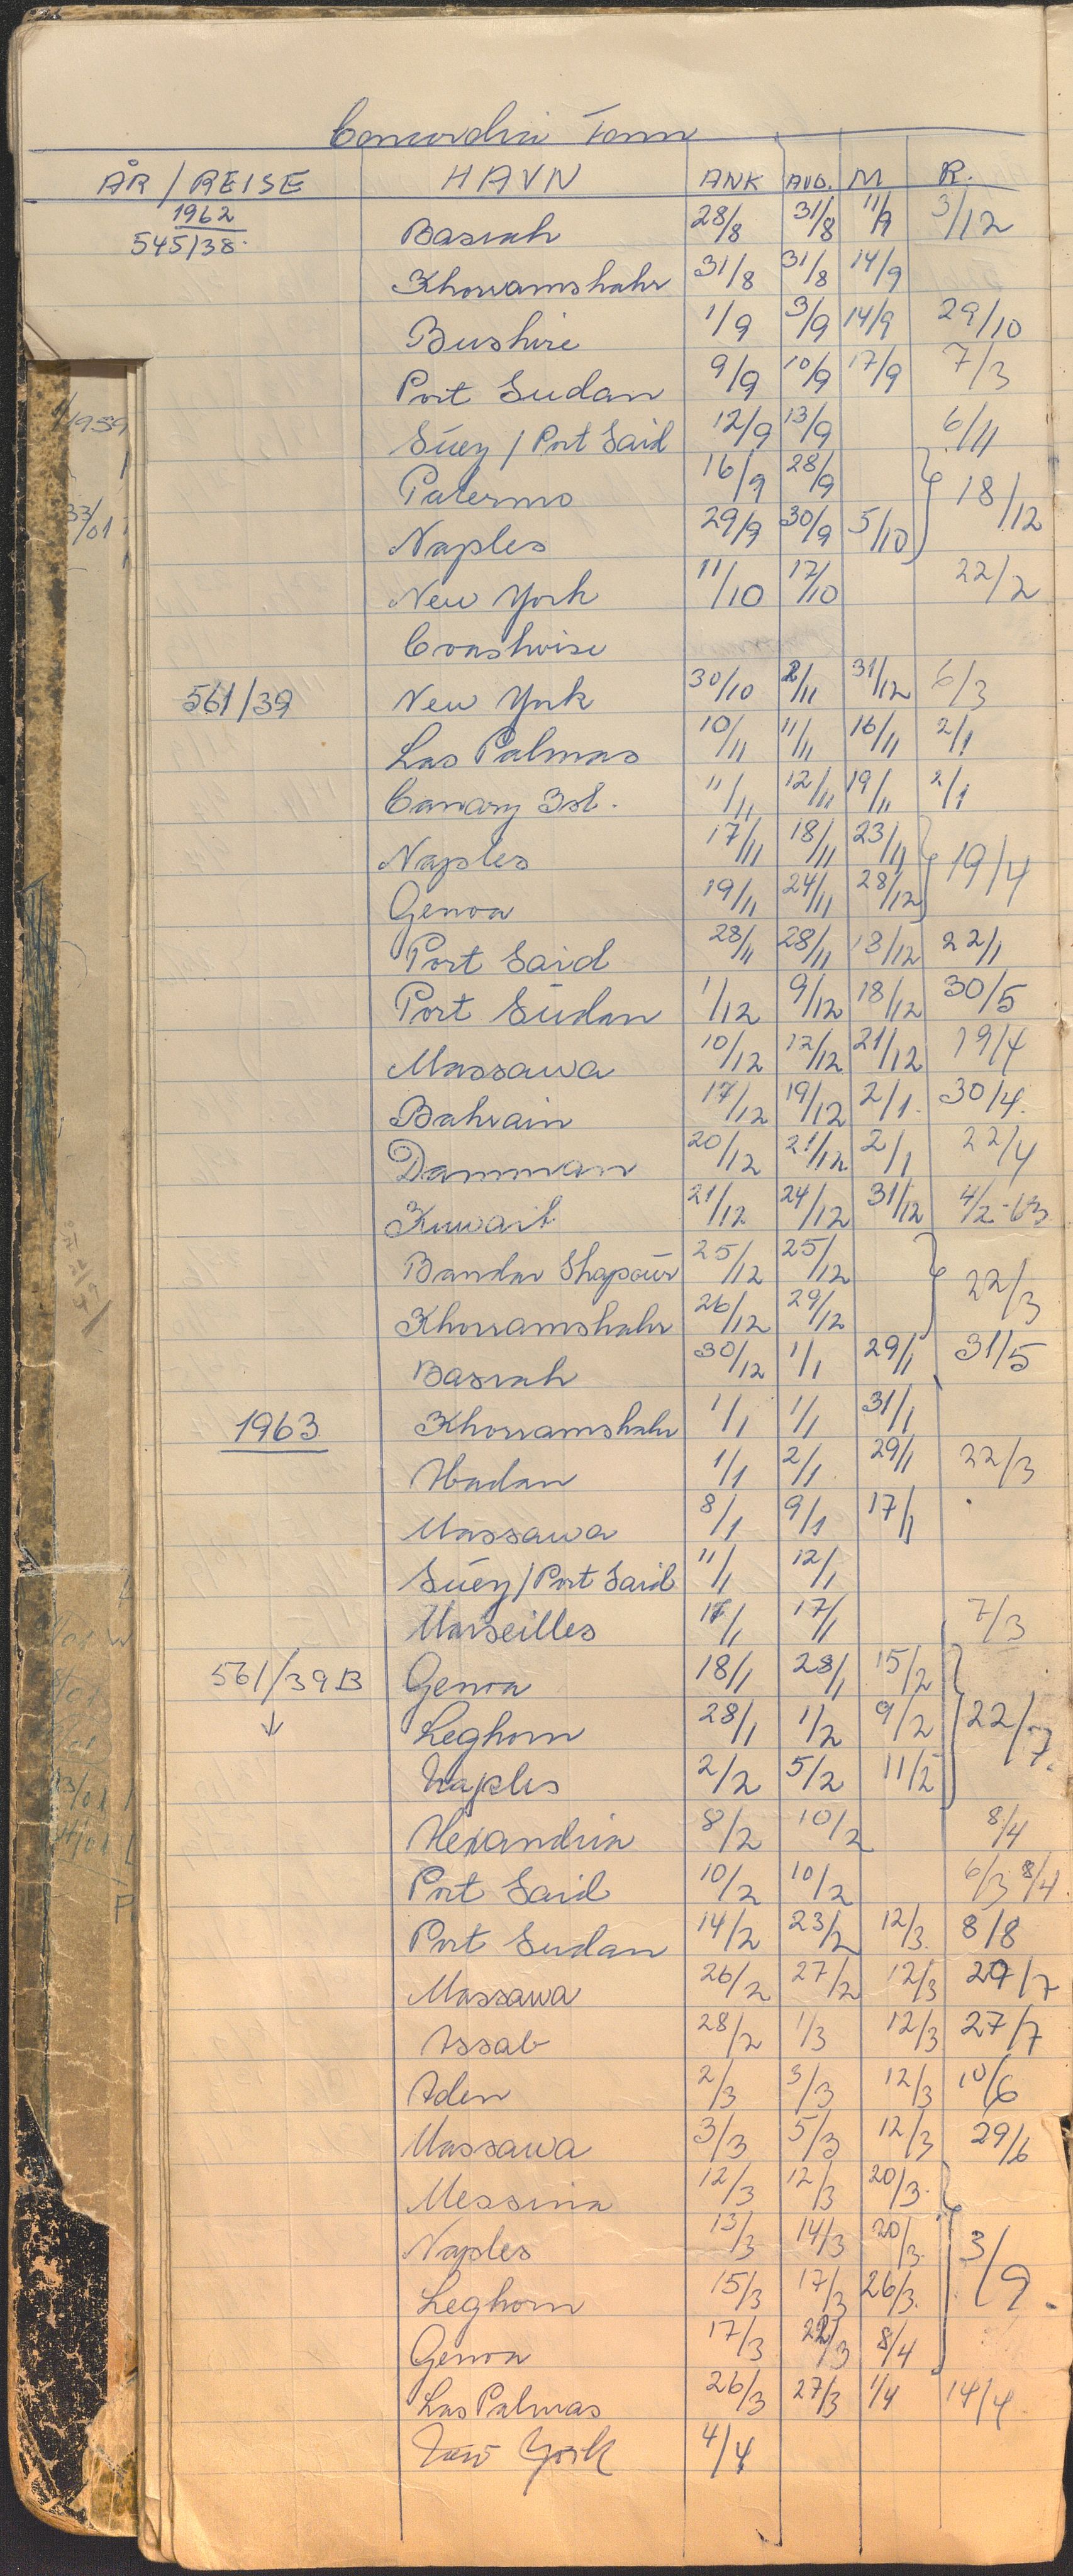 Concordia Fonn
ÅR / REISE HAVN ANK AVG. M R.
1962
545/38. Basrah 28/8 31/8 11/9 3/12
Khorramshahr 31/8 31/8 14/9
Bushire 1/9 3/9 14/9 29/10
Port Sudan 9/9 10/9 17/9 7/3
Suez / Port Said 12/9 13/9 6/11
Palermo 16/9 28/9
18/12
Naples 29/9 30/9 5/10
New York 11/10 17/10 22/2
Coastwise
561/39 New York 30/10 2/11 31/12 6/3
Las Palmas 10/11 11/11 16/11 2/1
Canary Isl. 11/11 12/11 19/11 2/1
Naples 17/11 18/11 23/11
19/4
Genoa 19/11 24/11 28/12
Port Said 28/11 28/11 18/12 22/1
Port Sudan 1/12 9/12 18/12 30/5
Massawa 10/12 12/12 21/12 19/4
Bahrain 17/12 19/12 2/1. 30/4.
Damman 20/12 21/12 2/1 22/4
Kuwait 21/12 24/12 31/12 4/2-63
Bandar Shapour 25/12 25/12
22/3
Khorramshahr 26/12 29/12
Basrah 30/12 1/1 29/1 31/5
1963 Khorramshahr 1/1 1/1 31/1
Abadan 1/1 2/1 29/1 22/3
Massawa 8/1 9/1 17/1
Suez / Port Said 11/1 12/1
Marseilles 17/1 17/1 7/3
561/39B Genoa 18/1 28/1 15/2
↓ Leghorn 28/1 1/2 9/2 22/7.
Naples 2/2 5/2 11/2
Alexandria 8/2 10/2 8/4
Port Said 10/2 10/2 6/3 8/4.
Port Sudan 14/2 23/2 12/3. 8/8
Massawa 26/2 27/2 12/3 29/7
Assab 28/2 1/3 12/3 27/7
Aden 2/3 3/3 12/3 10/6
Massawa 3/3 5/3 12/3 29/6
Messina 12/3 12/3 20/3.
Naples 13/3 14/3 20/3. 3/9.
Leghorn 15/3 17/3 26/3.
Genoa 17/3 22/3 8/4
Las Palmas 26/3 27/3 1/4 14/4.
New York 4/4